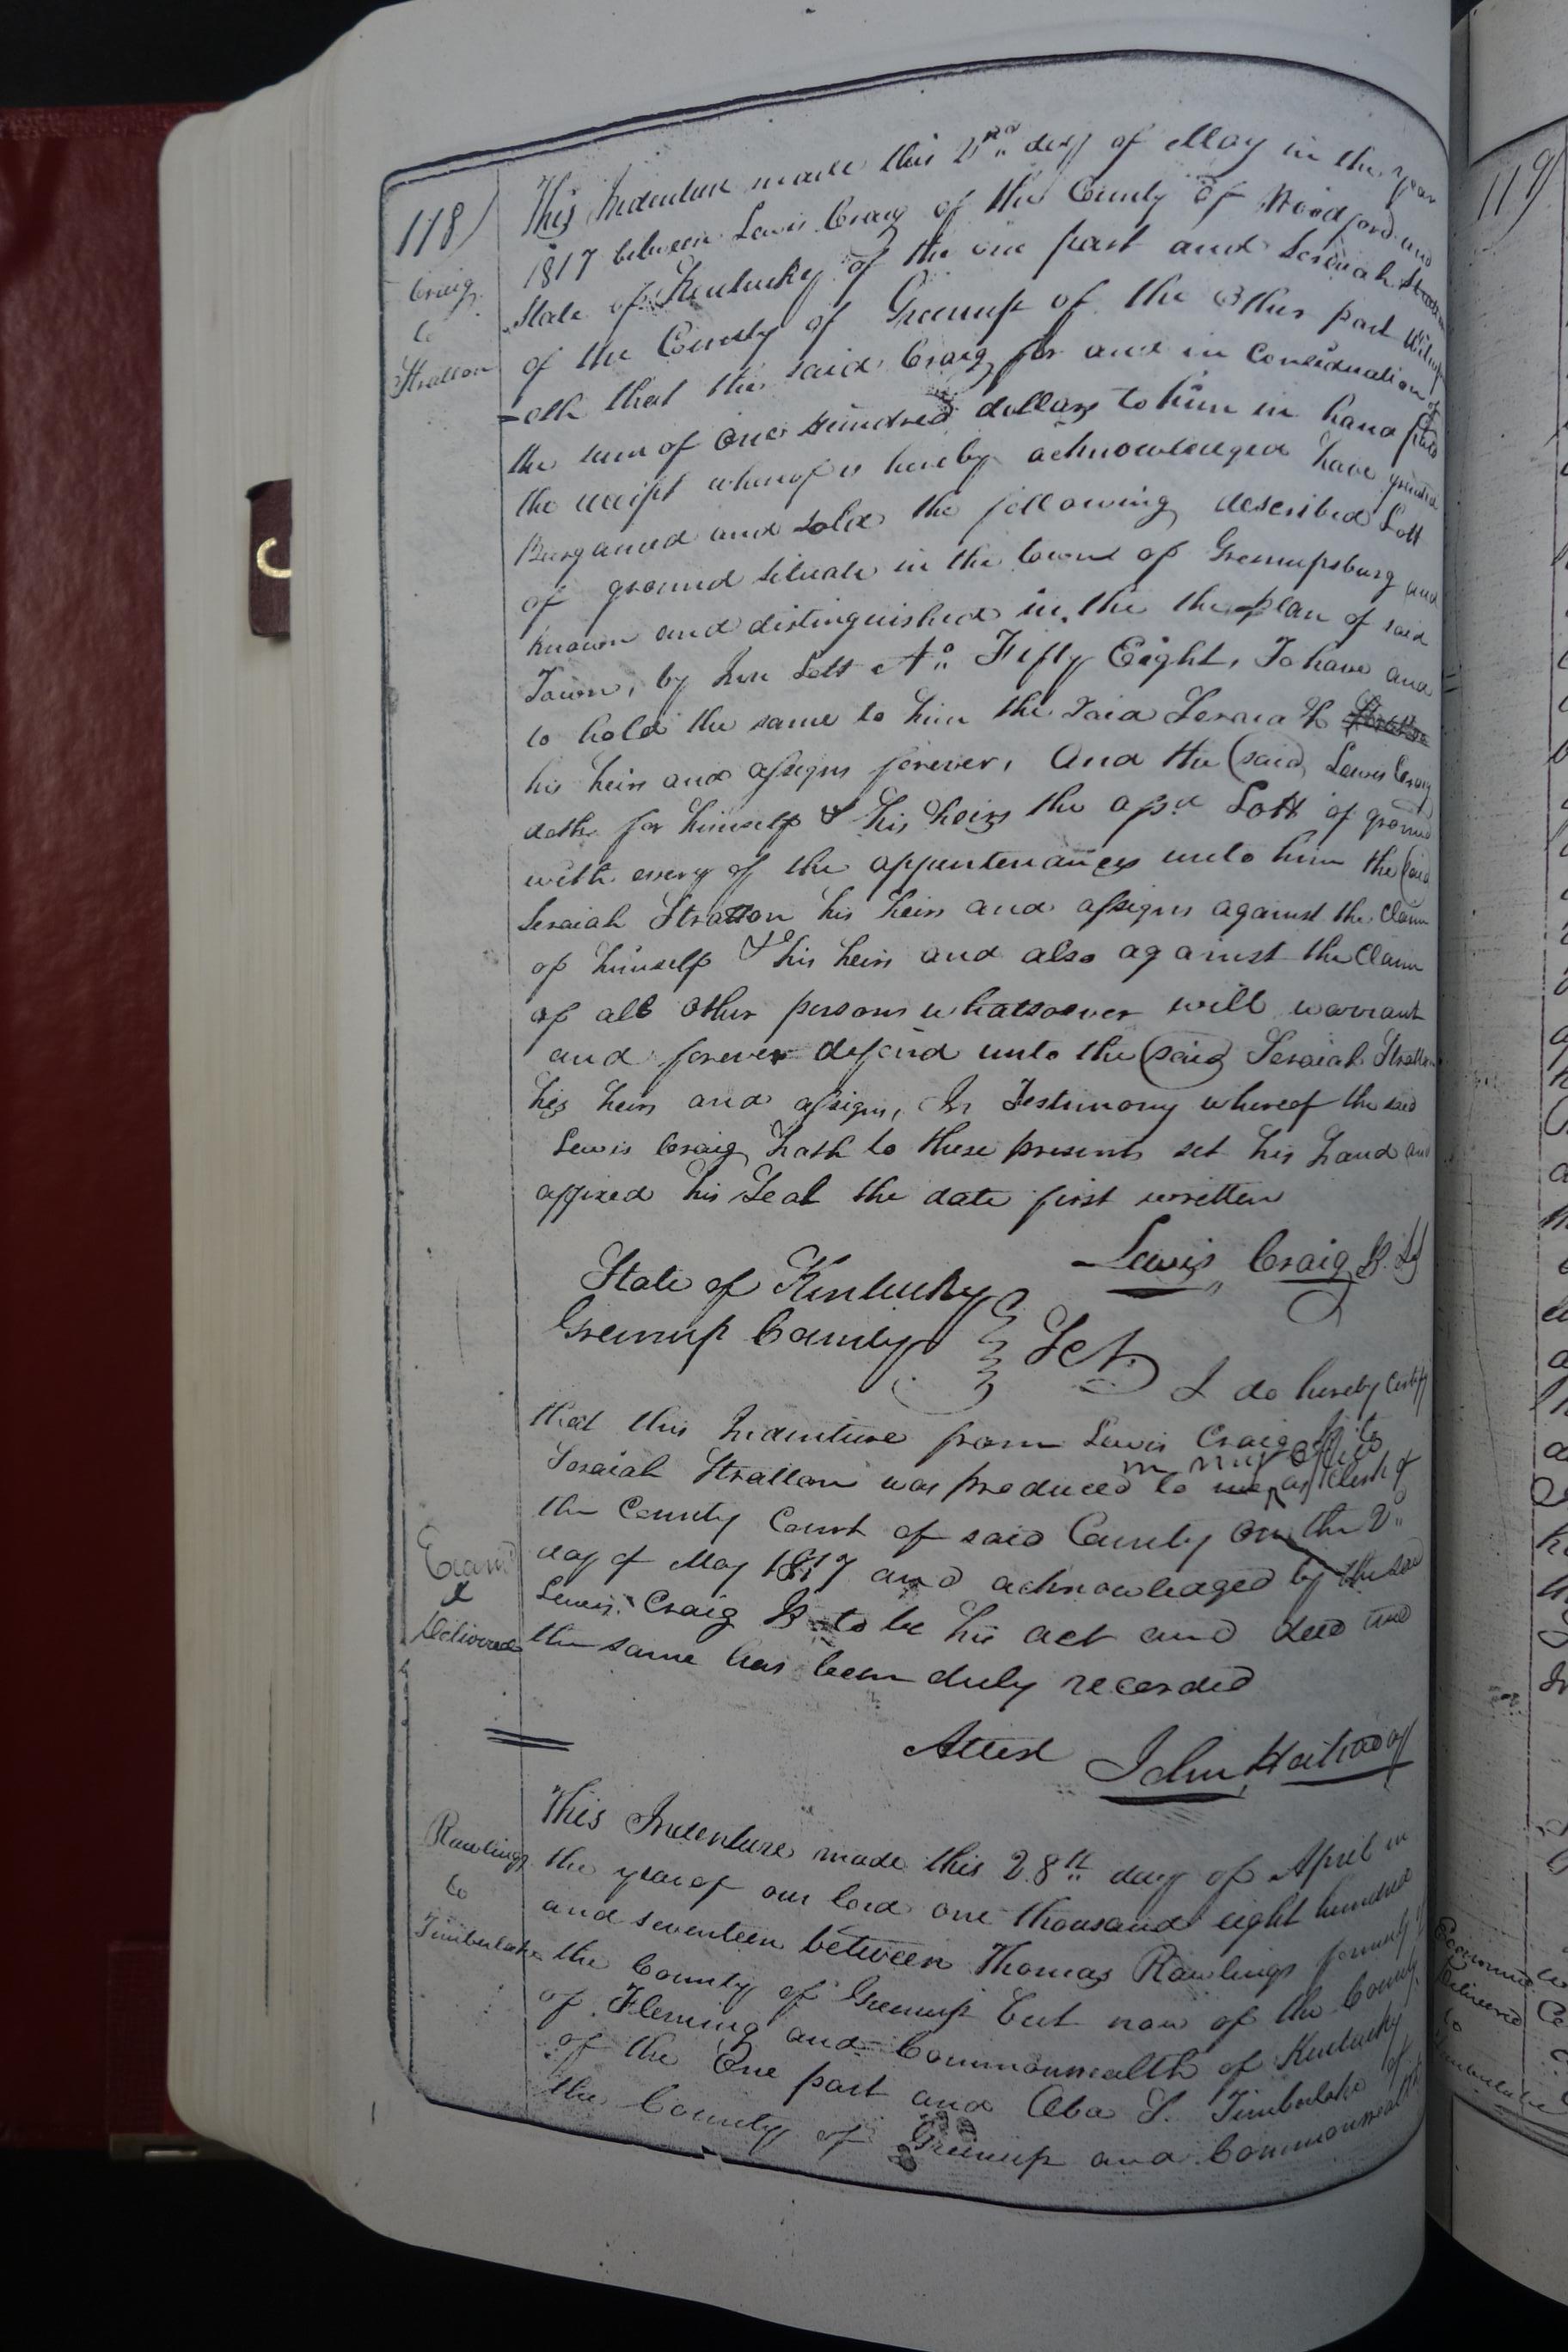 118
Craig
to
Stratton
This Indenture made this 2nd day of May in the year
1817 between Lewis Craig of the County of Woodford and
State of Kentucky of the one part and Seraiah Stratton
of the County of Greenup of the Other part Witness
=eth that the said Craig for and in Consideration of
the sum of One Hundred dollars to him in hand paid
the receipt whereof is hereby acknowledged have granted
Barganed and sold the following described Lott
of ground situate in the town of Greenupsburg and
known and distinguished in the the plan of said
Town, by Inn Lott No Fifty Eight, To have and
to hold the same to him the said Seraiah Stratton
his heirs and assigns forever, And the said Lewis Craig
doth for himself & his heirs the afsd Lott of ground
with every of the appurtenances unto him the said
Seraiah Stratton his heirs and assigns against the Claim
of himself & his heirs and also against the Claim
of all other persons whatsoever will warrant
and forever defend unto the said Seraiah Stratton
his heirs and assigns, In Testimony whereof the said
Lewis Craig hath to these presents set his hand and
affixed his Seal the date first written
Lewis Craig
State of Kentucky
Greenup County Sct.
I do hereby certify
that this Indenture from Lewis Craig to
in my office
Seraiah Stratton was produced to me as Clerk of
the County Court of said County on the 2"
day of May 1817 and acknowledged by the said
Lewis Craig to be his act and deed and
the same has been duly recorded
Examd
&
Delivered
Attest John Hathaway
Rawlings
to
Timberlake
This Indenture made this 28th day of April in
the year of our lord one thousand eight hundred
and seventeen between Thomas Rawlings formerly of
the County of Greenup but now of the County
of Fleming and Commonwealth of Kentucky
of the One part and Aba S. Timberlake of
the County of Greenup and Commonwealth
119
Examined
Delivered
to
Timberlake